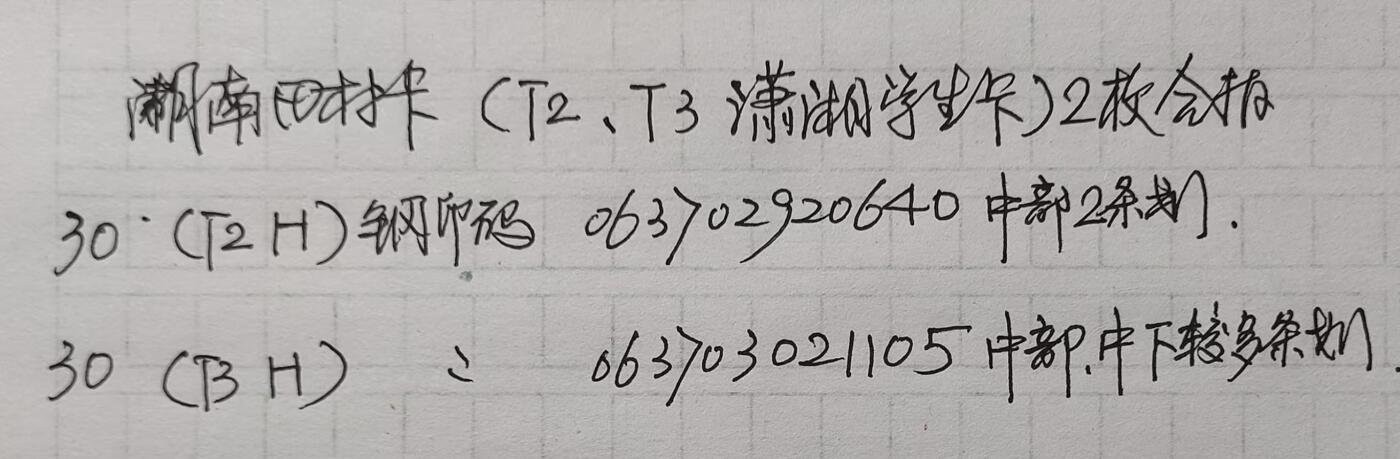 湖南田村卡（T2、T3 潇湘学生卡）2枚合拍
30·（T2 H）钢印码 063702920640 中部2条划.
30 （T3 H） 〃 063703021105 中部,中下较多条划.